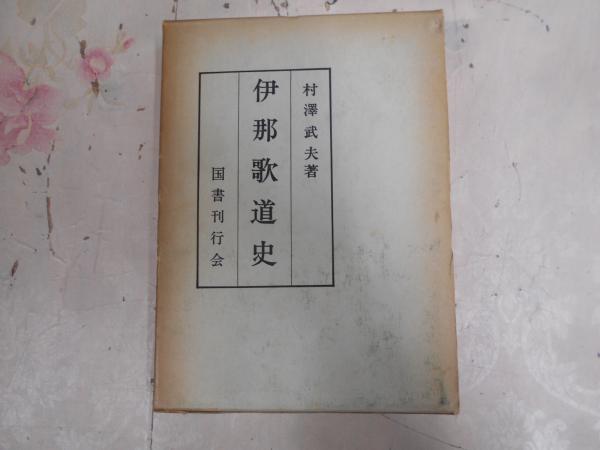 村澤武夫著
伊那歌道史
国書刊行会